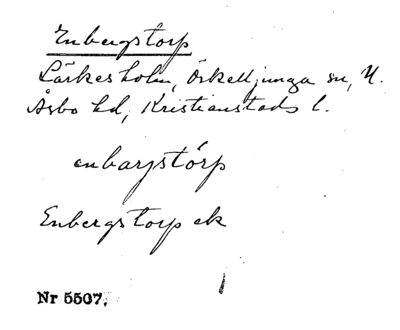 Enbergstorp
Lärkesholm, Örkelljunga sn, N.
Åsbo hd, Kristianstads l.
enbarjstórp
Enbergstorp ek
Nr 5507.